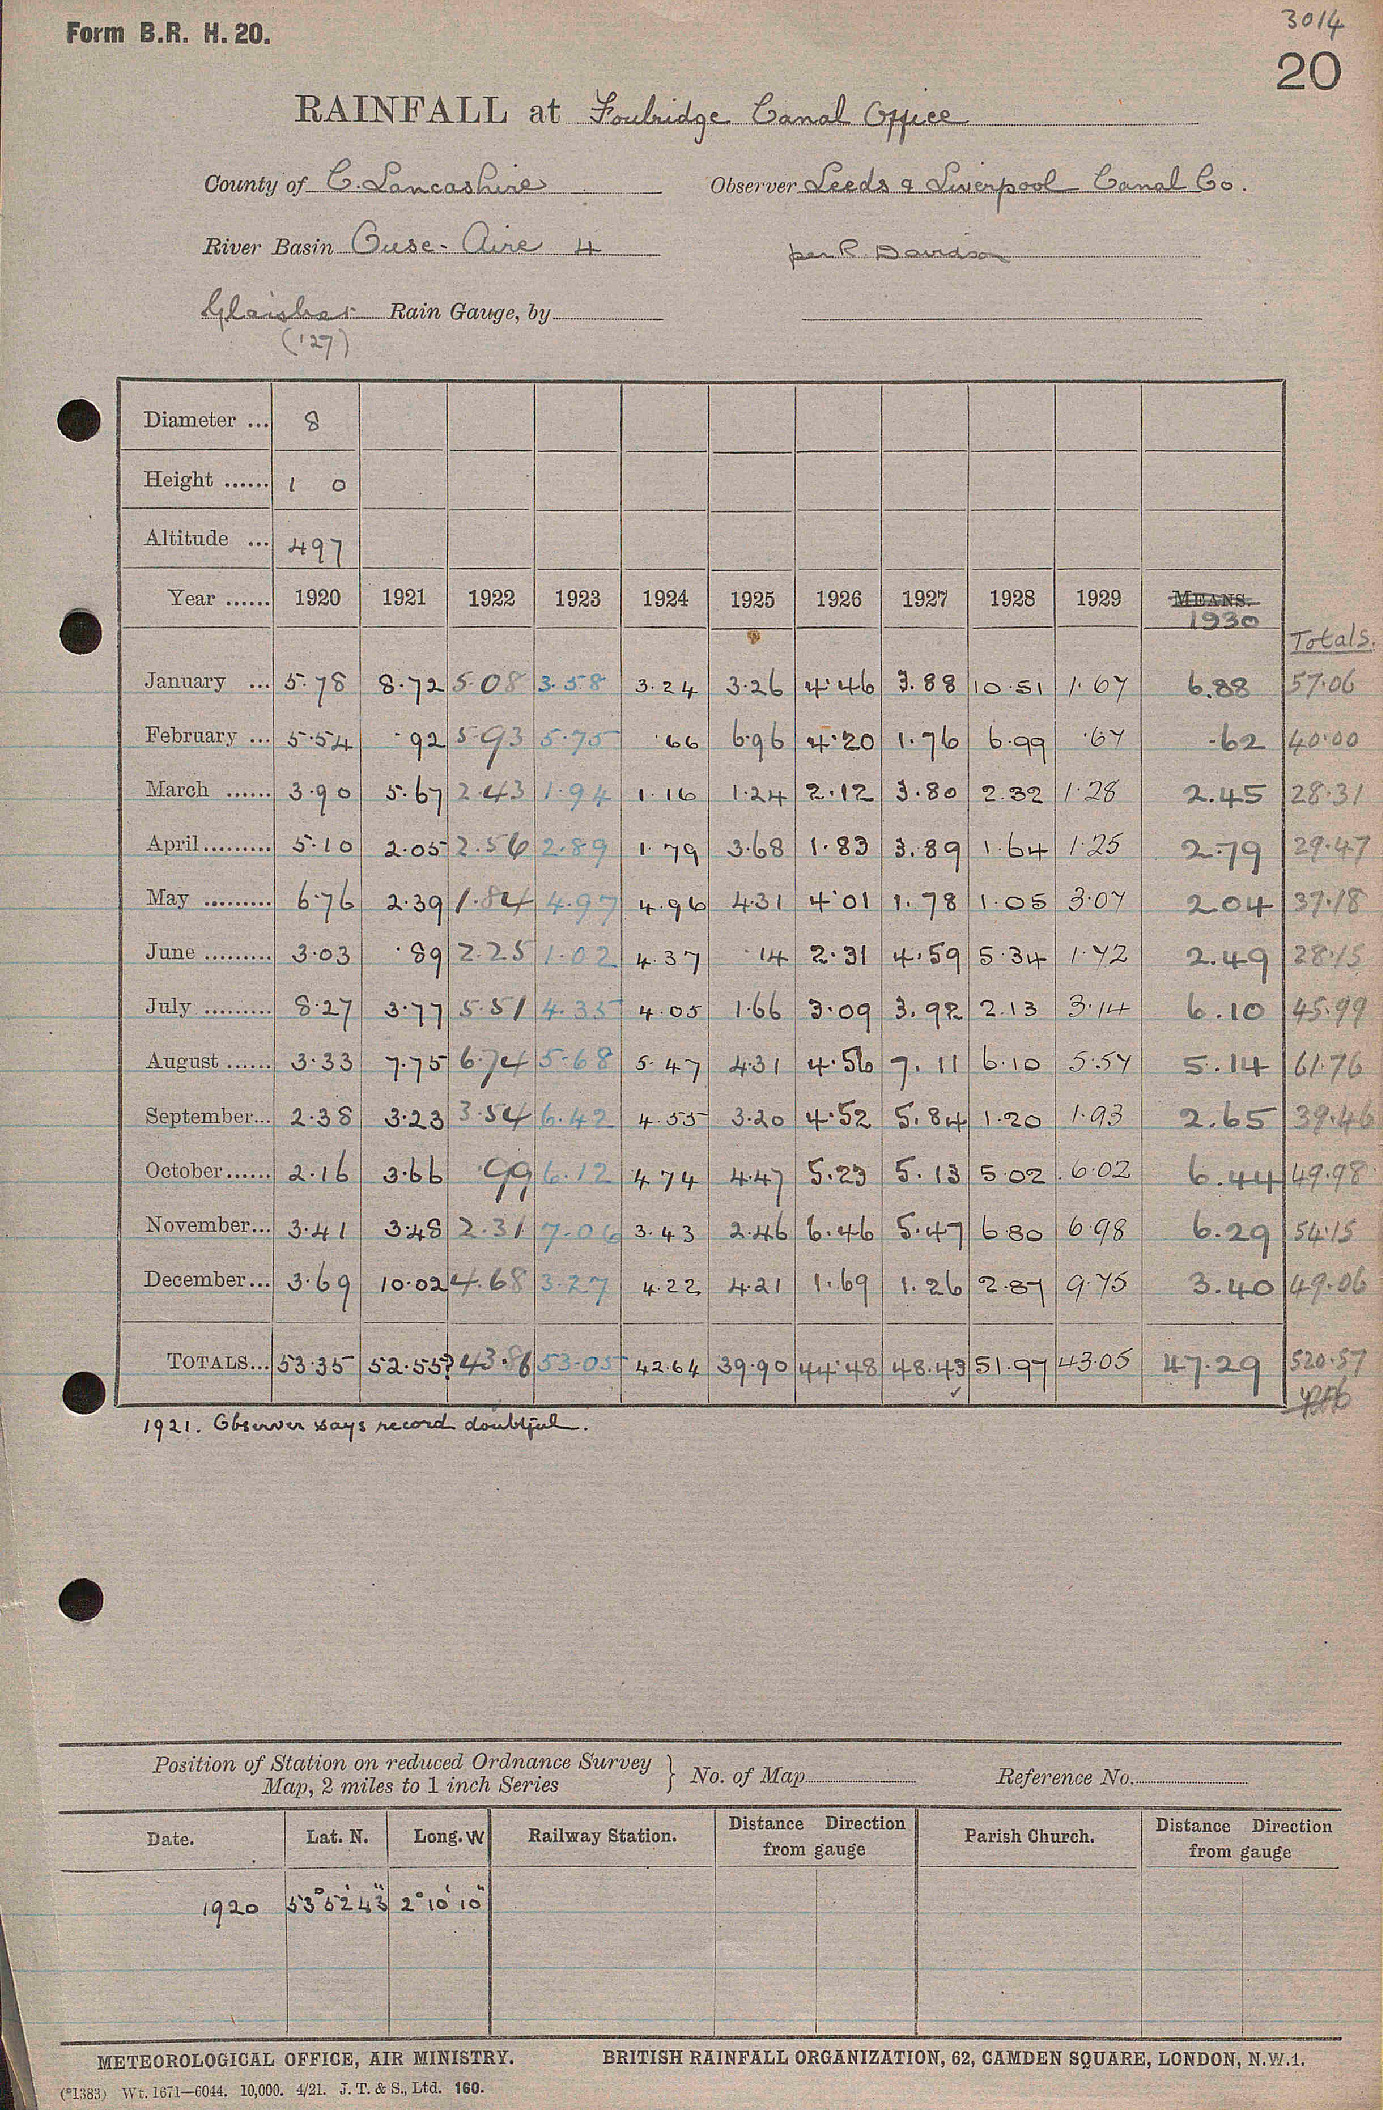 3014
Form B.R. H. 20.
20
RAINFALL at Foulridge Canal Office
County of C. Lancashire Observer Leeds & Liverpool Canal Co.
River Basin Ouse - Aire 4 per R. Davidson
Glaisher Rain Gauge, by
('27)
Diameter ... 8
Height ...... 1 0
Altitude ... 497
Year ...... 1920 1921 1922 1923 1924 1925 1926 1927 1928 1929 MEANS.
1930
Totals.
January ... 5.78 8.72 5.08 3.58 3.24 3.26 4.46 3.88 10.51 1.67 6.88 57.06
February ... 5.54 .92 5.93 5.75 .66 6.96 4.20 1.76 6.99 .67 .62 40.00
March ...... 3.90 5.67 2.43 1.94 1.16 1.24 2.12 3.80 2.32 1.28 2.45 28.31
April ......... 5.10 2.05 2.56 2.89 1.79 3.68 1.83 3.89 1.64 1.25 2.79 29.47
May ......... 6.76 2.39 1.84 4.97 4.96 4.31 4.01 1.78 1.05 3.07 2.04 37.18
June ......... 3.03 .89 2.25 1.02 4.37 .14 2.31 4.59 5.34 1.72 2.49 28.15
July ......... 8.27 3.77 5.51 4.35 4.05 1.66 3.09 3.92 2.13 3.14 6.10 45.99
August ...... 3.33 7.75 6.74 5.68 5.47 4.31 4.56 7.11 6.10 5.57 5.14 61.76
September... 2.38 3.23 3.54 6.42 4.55 3.20 4.52 5.84 1.20 1.93 2.65 39.46
October...... 2.16 3.66 .99 6.12 4.74 4.47 5.23 5.13 5.02 6.02 6.44 49.98
November... 3.41 3.48 2.31 7.06 3.43 2.46 6.46 5.47 6.80 6.98 6.29 54.15
December... 3.69 10.02 4.68 3.27 4.22 4.21 1.69 1.26 2.87 9.75 3.40 49.06
TOTALS... 53.35 52.55? 43.86 53.05 42.64 39.90 44.48 48.43 51.97 43.05 47.29 520.57
1921. Observer says record doubtful.
Position of Station on reduced Ordnance Survey
Map, 2 miles to 1 inch Series } No. of Map Reference No.
Date. Lat. N. Long. W Railway Station. Distance Direction from gauge Parish Church. Distance Direction from gauge
1920 53° 52' 43" 2° 10' 10"
METEOROLOGICAL OFFICE, AIR MINISTRY. BRITISH RAINFALL ORGANIZATION, 62, CAMDEN SQUARE, LONDON, N.W.1.
(*1383) Wt. 1671—6044. 10,000. 4/21. J. T. & S., Ltd. 160.